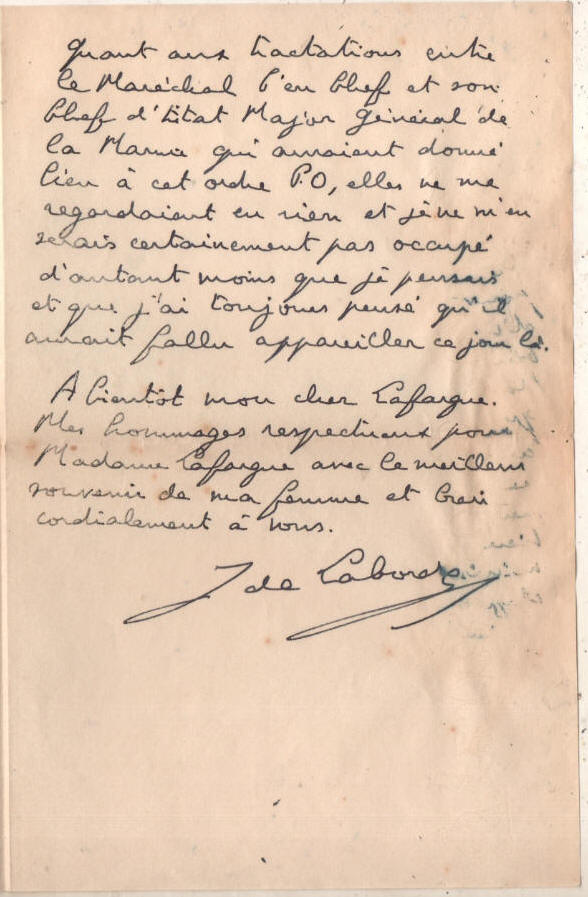 Quant aux tractations entre
le Maréchal l'en Chef et son
Chef d'Etat Major Général de
la Marine qui auraient donné
lieu à cet ordre P.O, elles ne me
regardaient en rien et je ne m'en
serais certainement pas occupé
d'autant moins que je pensais
et que j'ai toujours pensé qu'il
aurait fallu appareiller ce jour là.
A bientôt mon cher Lafargue.
Mes hommages respectueux pour
Madame Lafargue avec le meilleur
souvenir de ma femme et bien
cordialement à vous.
J de Laborde